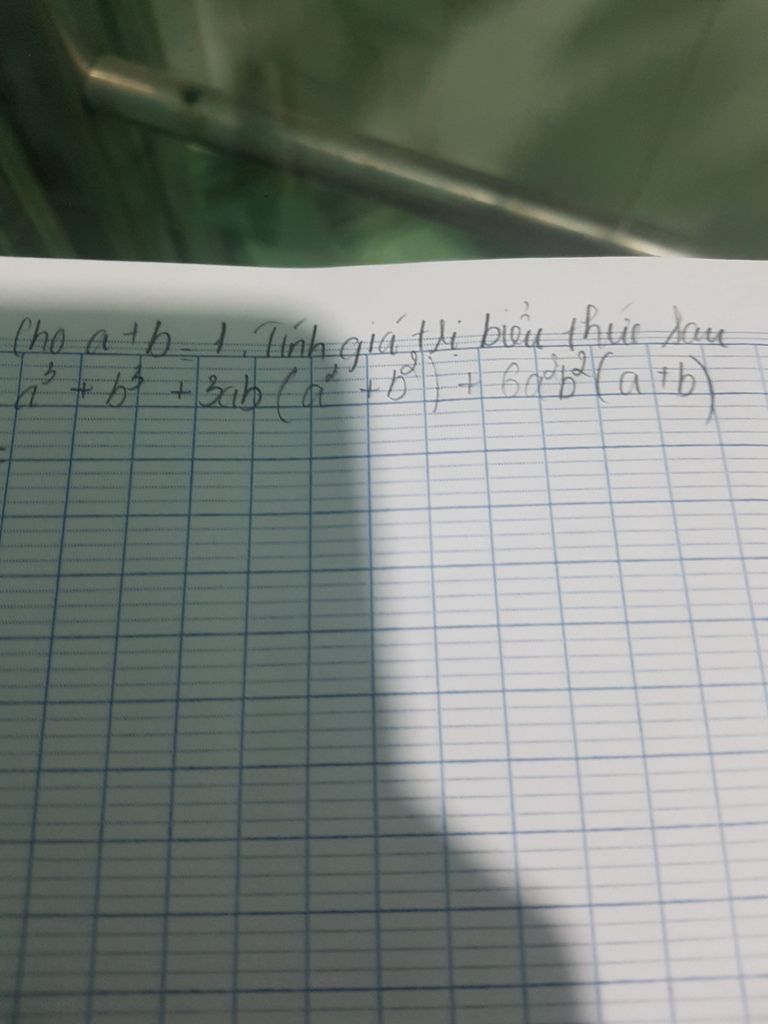 Cho a+b=1. Tính giá trị biểu thức sau
a³ + b³ + 3ab (a² + b²) + 6a²b² (a+b)
=